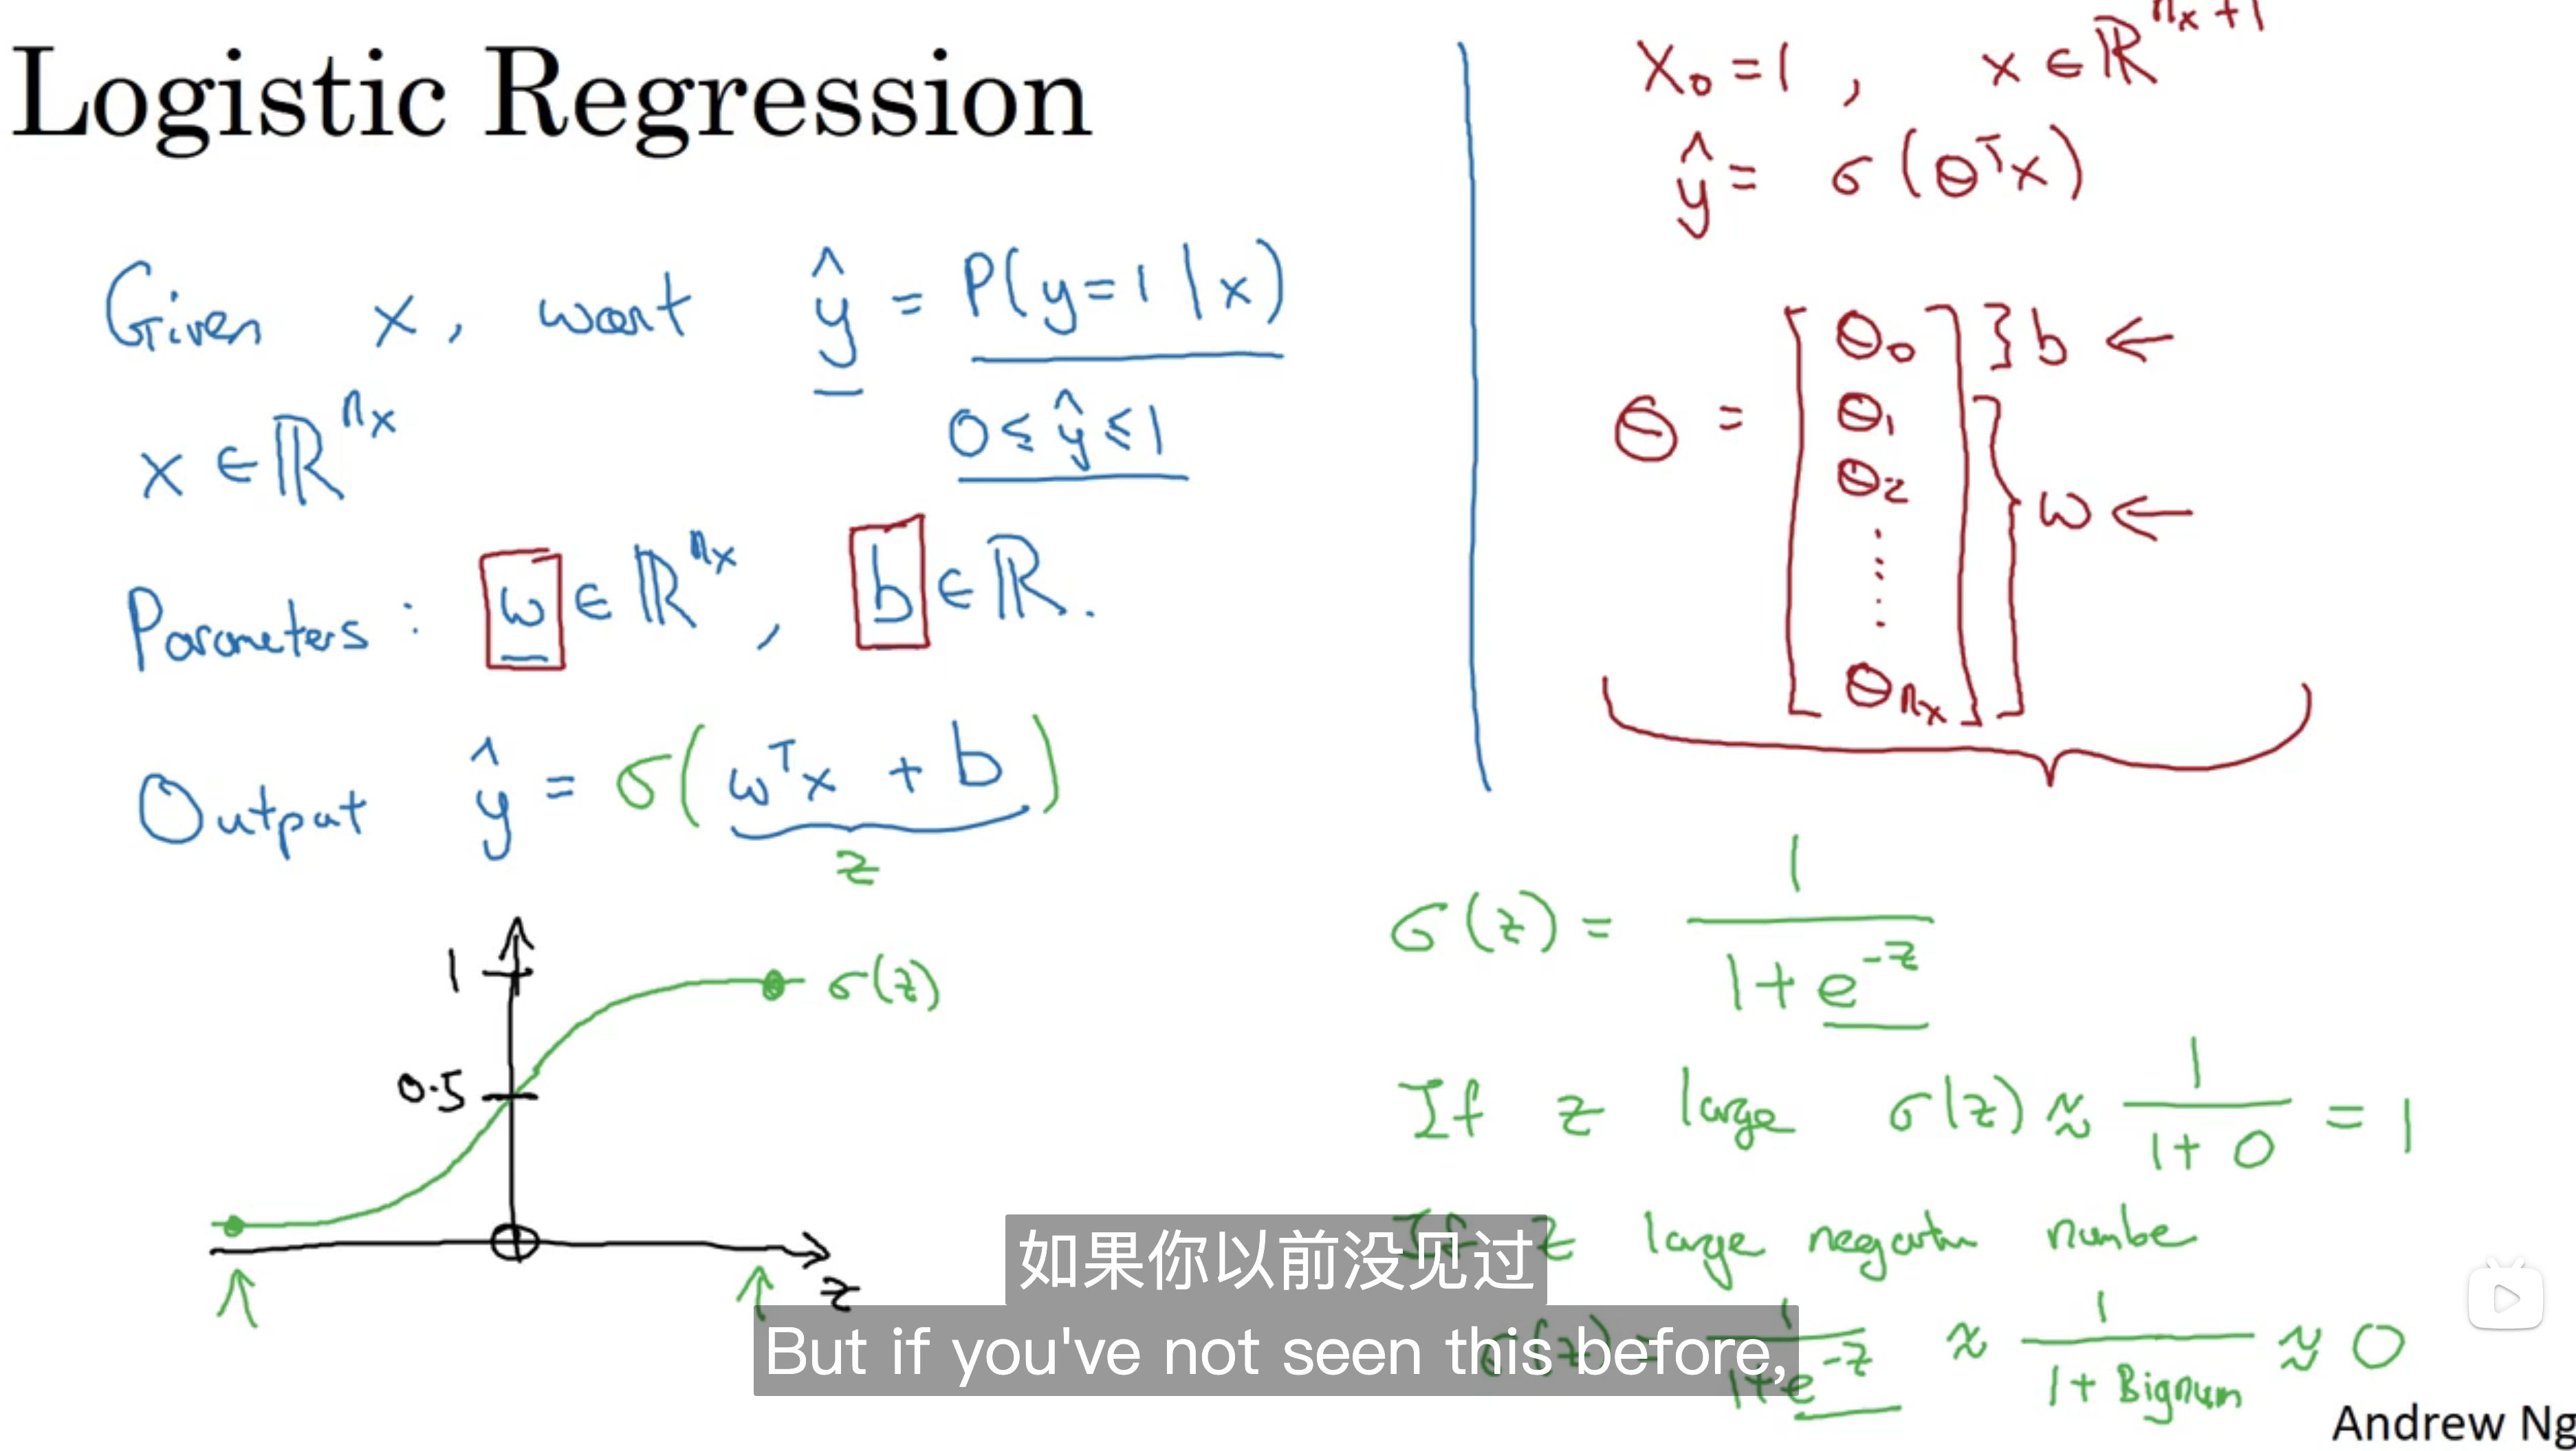 Logistic Regression
Given x, want ŷ = P(y=1|x)
0 ≤ ŷ ≤ 1
x ∈ ℝ^{n_x}
Parameters: w ∈ ℝ^{n_x}, b ∈ ℝ.
Output ŷ = σ(w^T x + b)
z
1
σ(z)
0.5
z
x_0 = 1, x ∈ ℝ^{n_x+1}
ŷ = σ(θ^T x)
θ = [θ_0 θ_1 θ_2 ⋮ θ_{n_x}]
} b ←
} w ←
σ(z) = 1/(1+e^{-z})
If z large σ(z) ≈ 1/(1+0) = 1
If z large negative number
σ(z) = 1/(1+e^{-z}) ≈ 1/(1+Bignum) ≈ 0
如果你以前没见过
But if you've not seen this before,
Andrew Ng